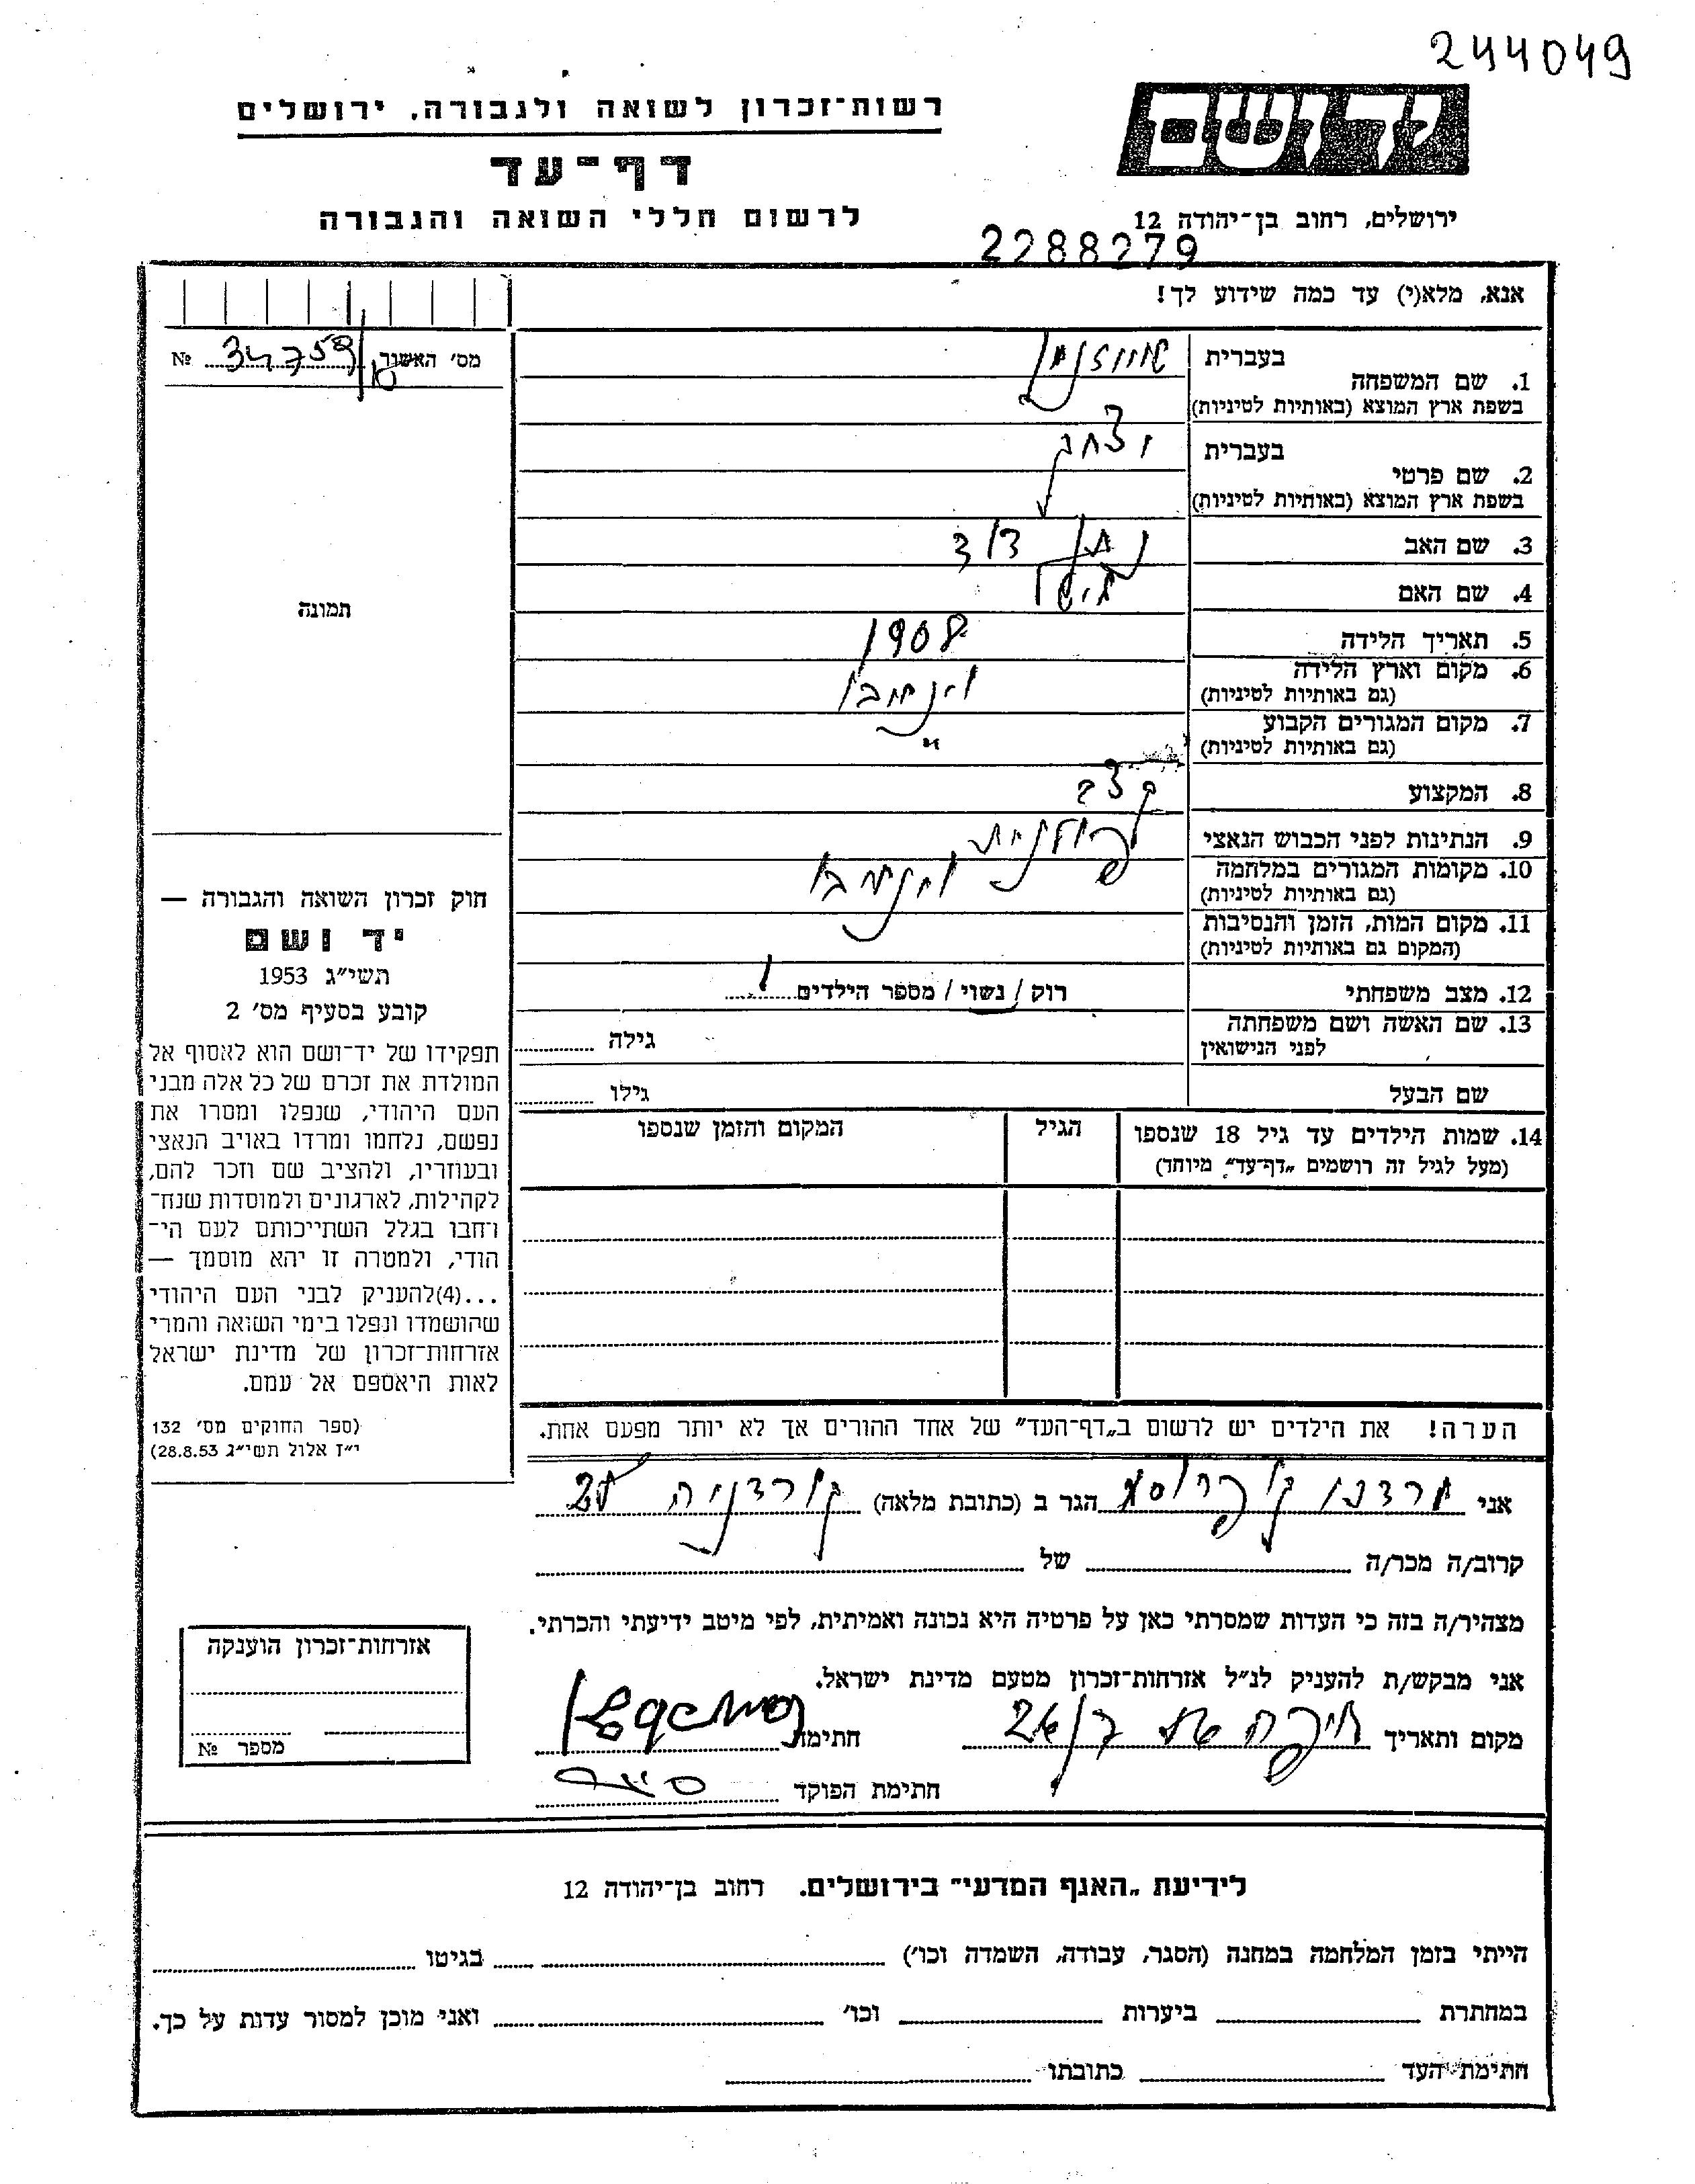 244049
יד ושם
רשות־זכרון לשואה ולגבורה, ירושלים
דף־עד
לרשום חללי השואה והגבורה
ירושלים, רחוב בן־יהודה 12
2288279
אנא, מלא(י) עד כמה שידוע לך!
מס׳ האשור 34759 №
בעברית
1. שם המשפחה
בשפת ארץ המוצא (באותיות לטיניות)
בעברית יצחק
2. שם פרטי
בשפת ארץ המוצא (באותיות לטיניות)
3. שם האב נתן דוד
4. שם האם
5. תאריך הלידה 1908
6. מקום וארץ הלידה
(גם באותיות לטיניות)
7. מקום המגורים הקבוע "
(גם באותיות לטיניות)
8. המקצוע קצב
9. הנתינות לפני הכבוש הנאצי פולנית
10. מקומות המגורים במלחמה
(גם באותיות לטיניות)
11. מקום המות, הזמן והנסיבות
(המקום גם באותיות לטיניות)
12. מצב משפחתי רוק / נשוי / מספר הילדים 1
13. שם האשה ושם משפחתה גילה
לפני הנישואין
שם הבעל גילו
14. שמות הילדים עד גיל 18 שנספו הגיל המקום והזמן שנספו
(מעל לגיל זה רושמים „דף־עד" מיוחד)
הערה! את הילדים יש לרשום ב„דף־העד" של אחד ההורים אך לא יותר מפעם אחת.
תמונה
חוק זכרון השואה והגבורה —
יד ושם
תשי״ג 1953
קובע בסעיף מס׳ 2
תפקידו של יד־ושם הוא לאסוף אל
המולדת את זכרם של כל אלה מבני
העם היהודי, שנפלו ומסרו את
נפשם, נלחמו ומרדו באויב הנאצי
ובעוזריו, ולהציב שם וזכר להם,
לקהילות, לארגונים ולמוסדות שנח־
רחבו בגלל השתייכותם לעם הי־
הודי, ולמטרה זו יהא מוסמך —
...(4)להעניק לבני העם היהודי
שהושמדו ונפלו בימי השואה והמרי
אזרחות־זכרון של מדינת ישראל
לאות היאספם אל עמם.
(ספר החוקים מס׳ 132
י״ז אלול תשי״ג 28.8.53)
אני הגר ב (כתובת מלאה)
קרוב/ה מכר/ה של
מצהיר/ה בזה כי העדות שמסרתי כאן על פרטיה היא נכונה ואמיתית, לפי מיטב ידיעתי והכרתי.
אני מבקש/ת להעניק לנ״ל אזרחות־זכרון מטעם מדינת ישראל.
מקום ותאריך חתימה
חתימת הפוקד
אזרחות־זכרון הוענקה
מספר №
לידיעת „האגף המדעי" בירושלים. רחוב בן־יהודה 12
הייתי בזמן המלחמה במחנה (הסגר, עבודה, השמדה וכו׳) בגיטו
במחתרת ביערות וכו׳ ואני מוכן למסור עדות על כך.
חתימת העד כתובתו